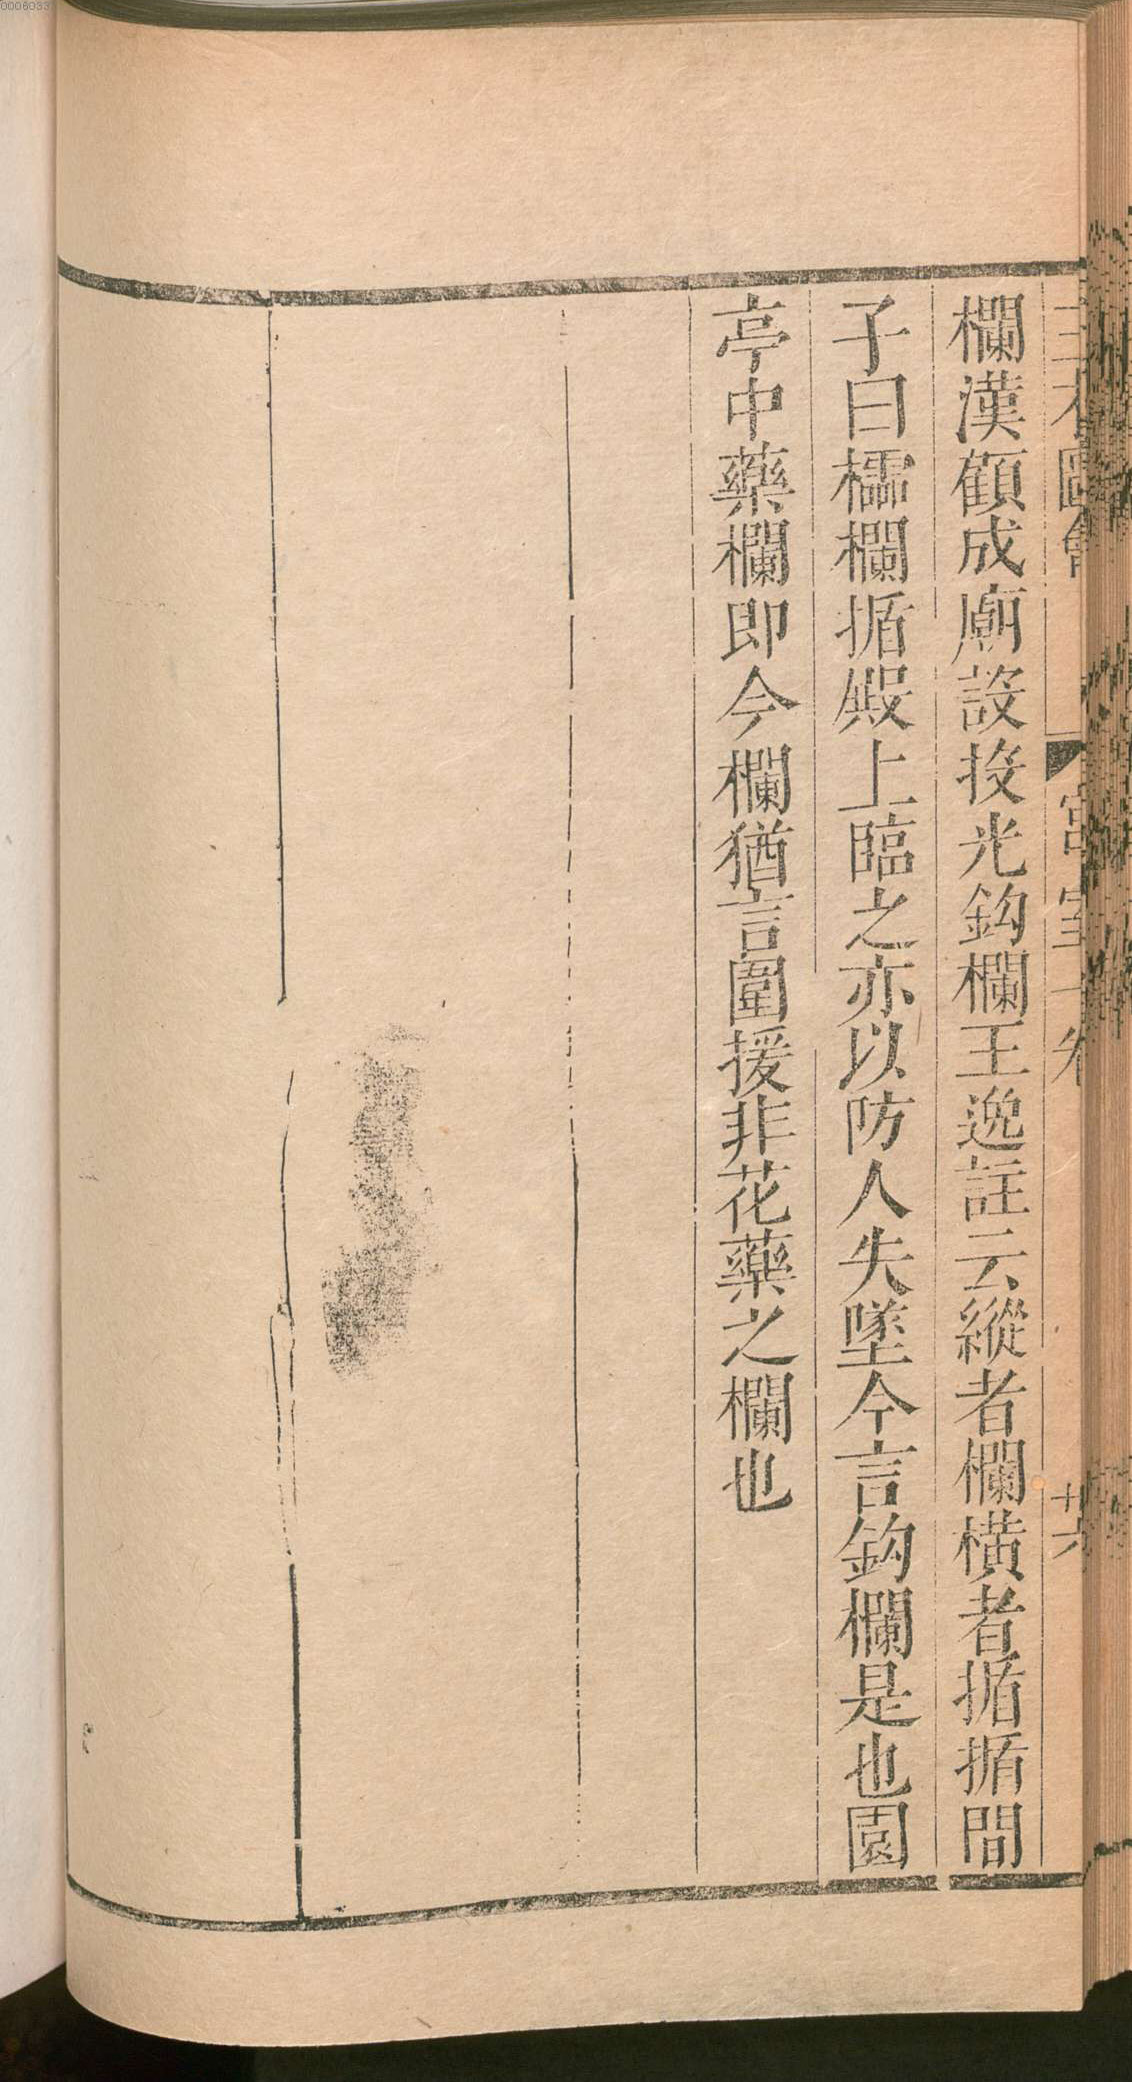 三才圖會 宮室一卷 廿六
欄漢顧成廟設扶光鈎欄王逸註云縱者欄橫者揗揗間
子曰櫺欄揗殿上臨之亦以防人失墜今言鈎欄是也園
亭中藥欄即今欄猶言圍援非花藥之欄也
0006033